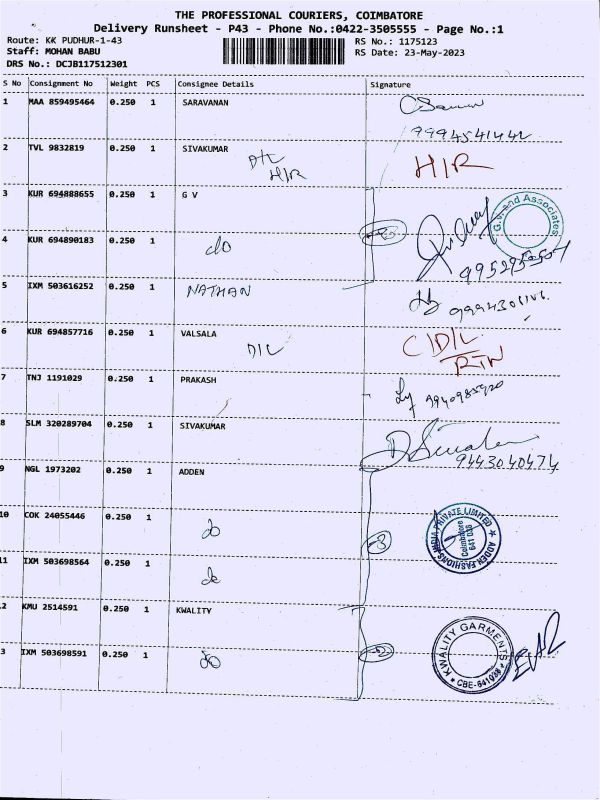 THE PROFESSIONAL COURIERS, COIMBATORE
Delivery Runsheet - P43 - Phone No.:0422-3505555 - Page No.:1
Route: KK PUDHUR-1-43
RS No.: 1175123
Staff: MOHAN BABU
RS Date: 23-May-2023
DRS No.: DCJB117512301
S No Consignment No Weight PCS Consignee Details Signature
1 MAA 859495464 0.250 1 SARAVANAN
9994541442
2 TVL 9832819 0.250 1 SIVAKUMAR
D/L H/R
H/R
3 KUR 694888655 0.250 1 G V
G.V. and Associates
4 KUR 694890183 0.250 1 do
5 IXM 503616252 0.250 1 NATHAN
6 KUR 694857716 0.250 1 VALSALA
D/L
C/D/L
RTN
7 TNJ 1191029 0.250 1 PRAKASH
8 SLM 320289704 0.250 1 SIVAKUMAR
9443040474
9 NGL 1973202 0.250 1 ADDEN
10 COK 24055446 0.250 1 do
3
ADDEN FASHIONS INDIA PRIVATE LIMITED
Coimbatore
641 038
11 IXM 503698564 0.250 1 do
2 KMU 2514591 0.250 1 KWALITY
KWALITY GARMENTS
CBE-641038
3 IXM 503698591 0.250 1 do
2